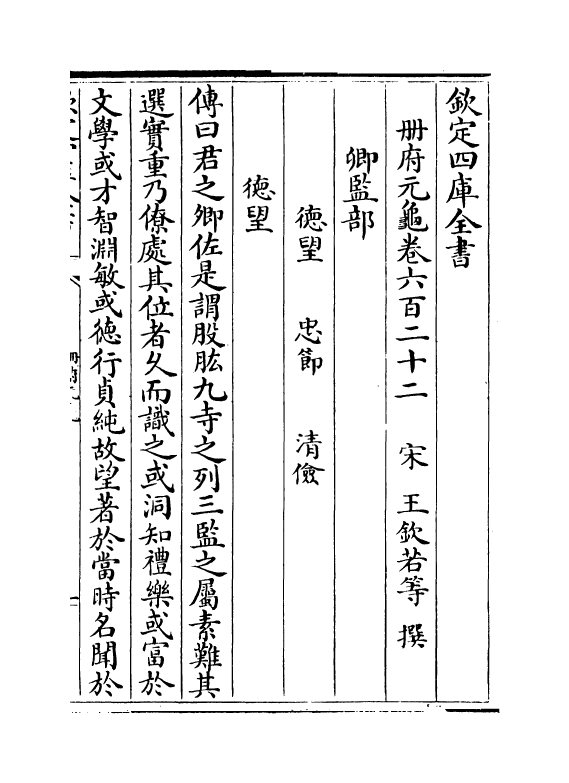 欽定四庫全書
册府元龜卷六百二十二　宋　王欽若等　撰
卿監部
徳望　忠節　清儉
徳望
傳曰君之卿佐是謂股肱九寺之列三監之屬素難其
選實重乃僚處其位者乆而識之或洞知禮樂或富於
文學或才智淵敏或徳行貞純故望著於當時名聞於